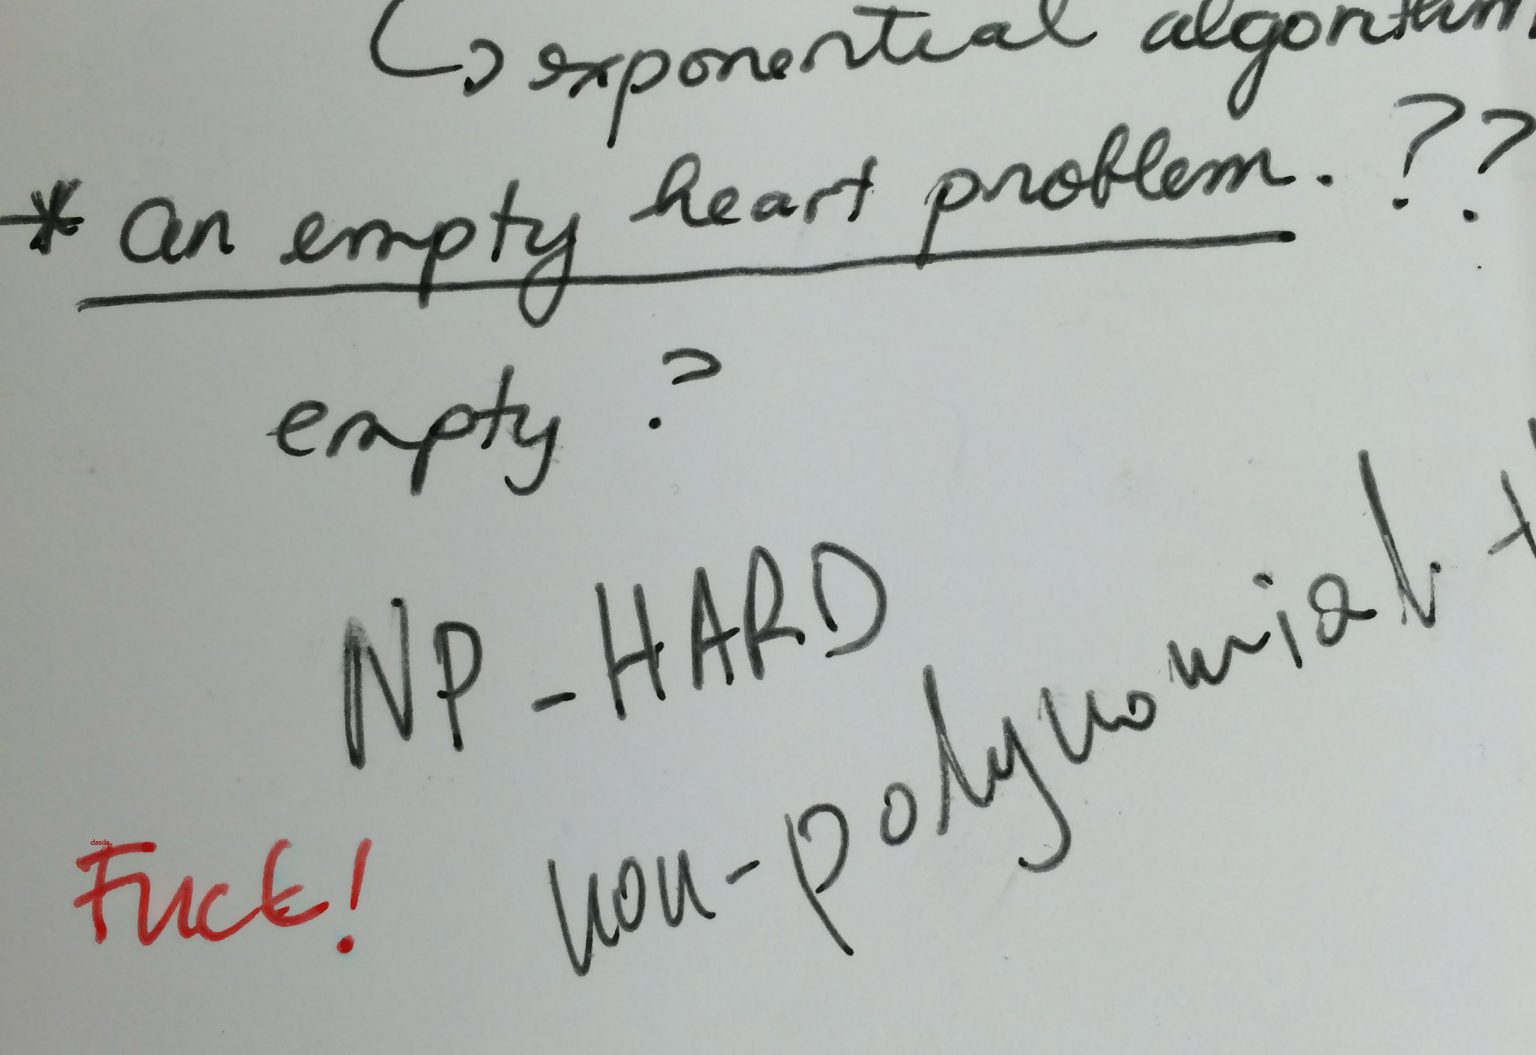 ↳ exponential algorithm
* an empty heart problem. ??
empty ?
NP-HARD
non-polynomial
Fuck!
dasda